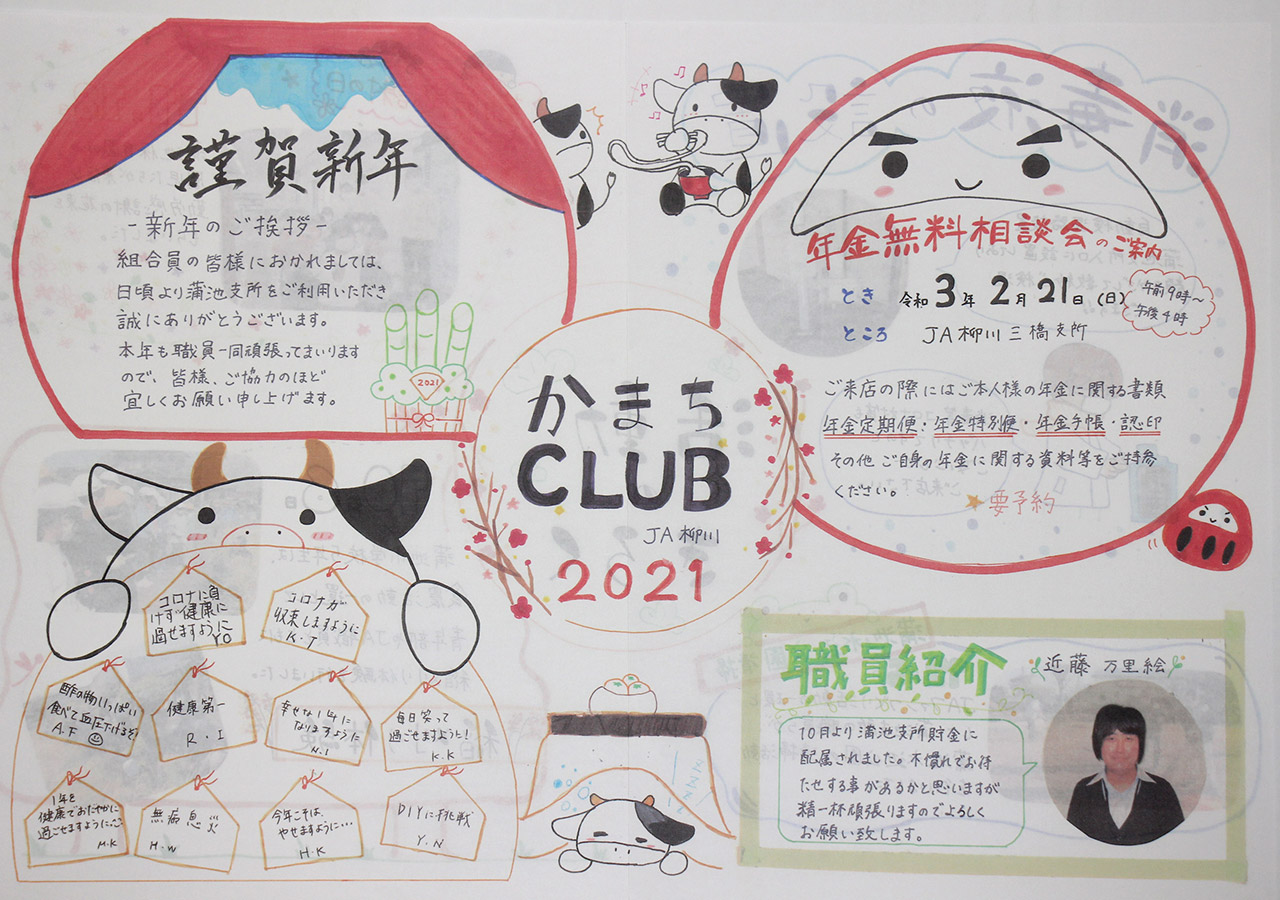 謹賀新年
-新年のご挨拶-
組合員の皆様におかれましては、
日頃より蒲池支所をご利用いただき
誠にありがとうございます。
本年も職員一同頑張ってまいります
ので、皆様、ご協力のほど
宜しくお願い申し上げます。
2021
年金無料相談会のご案内
とき 令和3年2月21日(日)
午前9時〜
午後4時
ところ JA柳川 三橋支所
ご来店の際にはご本人様の年金に関する書類
年金定期便・年金特別便・年金手帳・認印
その他 ご自身の年金に関する資料等をご持参
ください。
★要予約
かまち
CLUB
JA柳川
2021
コロナに負
けず健康に
過せますように
Y.O
コロナが
収束しますように
K.T
酢の物いっぱい
食べて血圧下げるぞ
A.F
健康第一
R.I
幸せな1年に
なりますように
N.I
毎日笑って
過ごせますように!
K.K
1年を
健康でおだやかに
過ごせますように
M.K
無病息災
H.W
今年こそは、
やせますように…
H.K
DIYに挑戦
Y.N
ZZZZZ
職員紹介
近藤 万里絵
10月より蒲池支所貯金に
配属されました。不慣れでお待
たせする事があるかと思いますが
精一杯頑張りますのでよろしく
お願い致します。